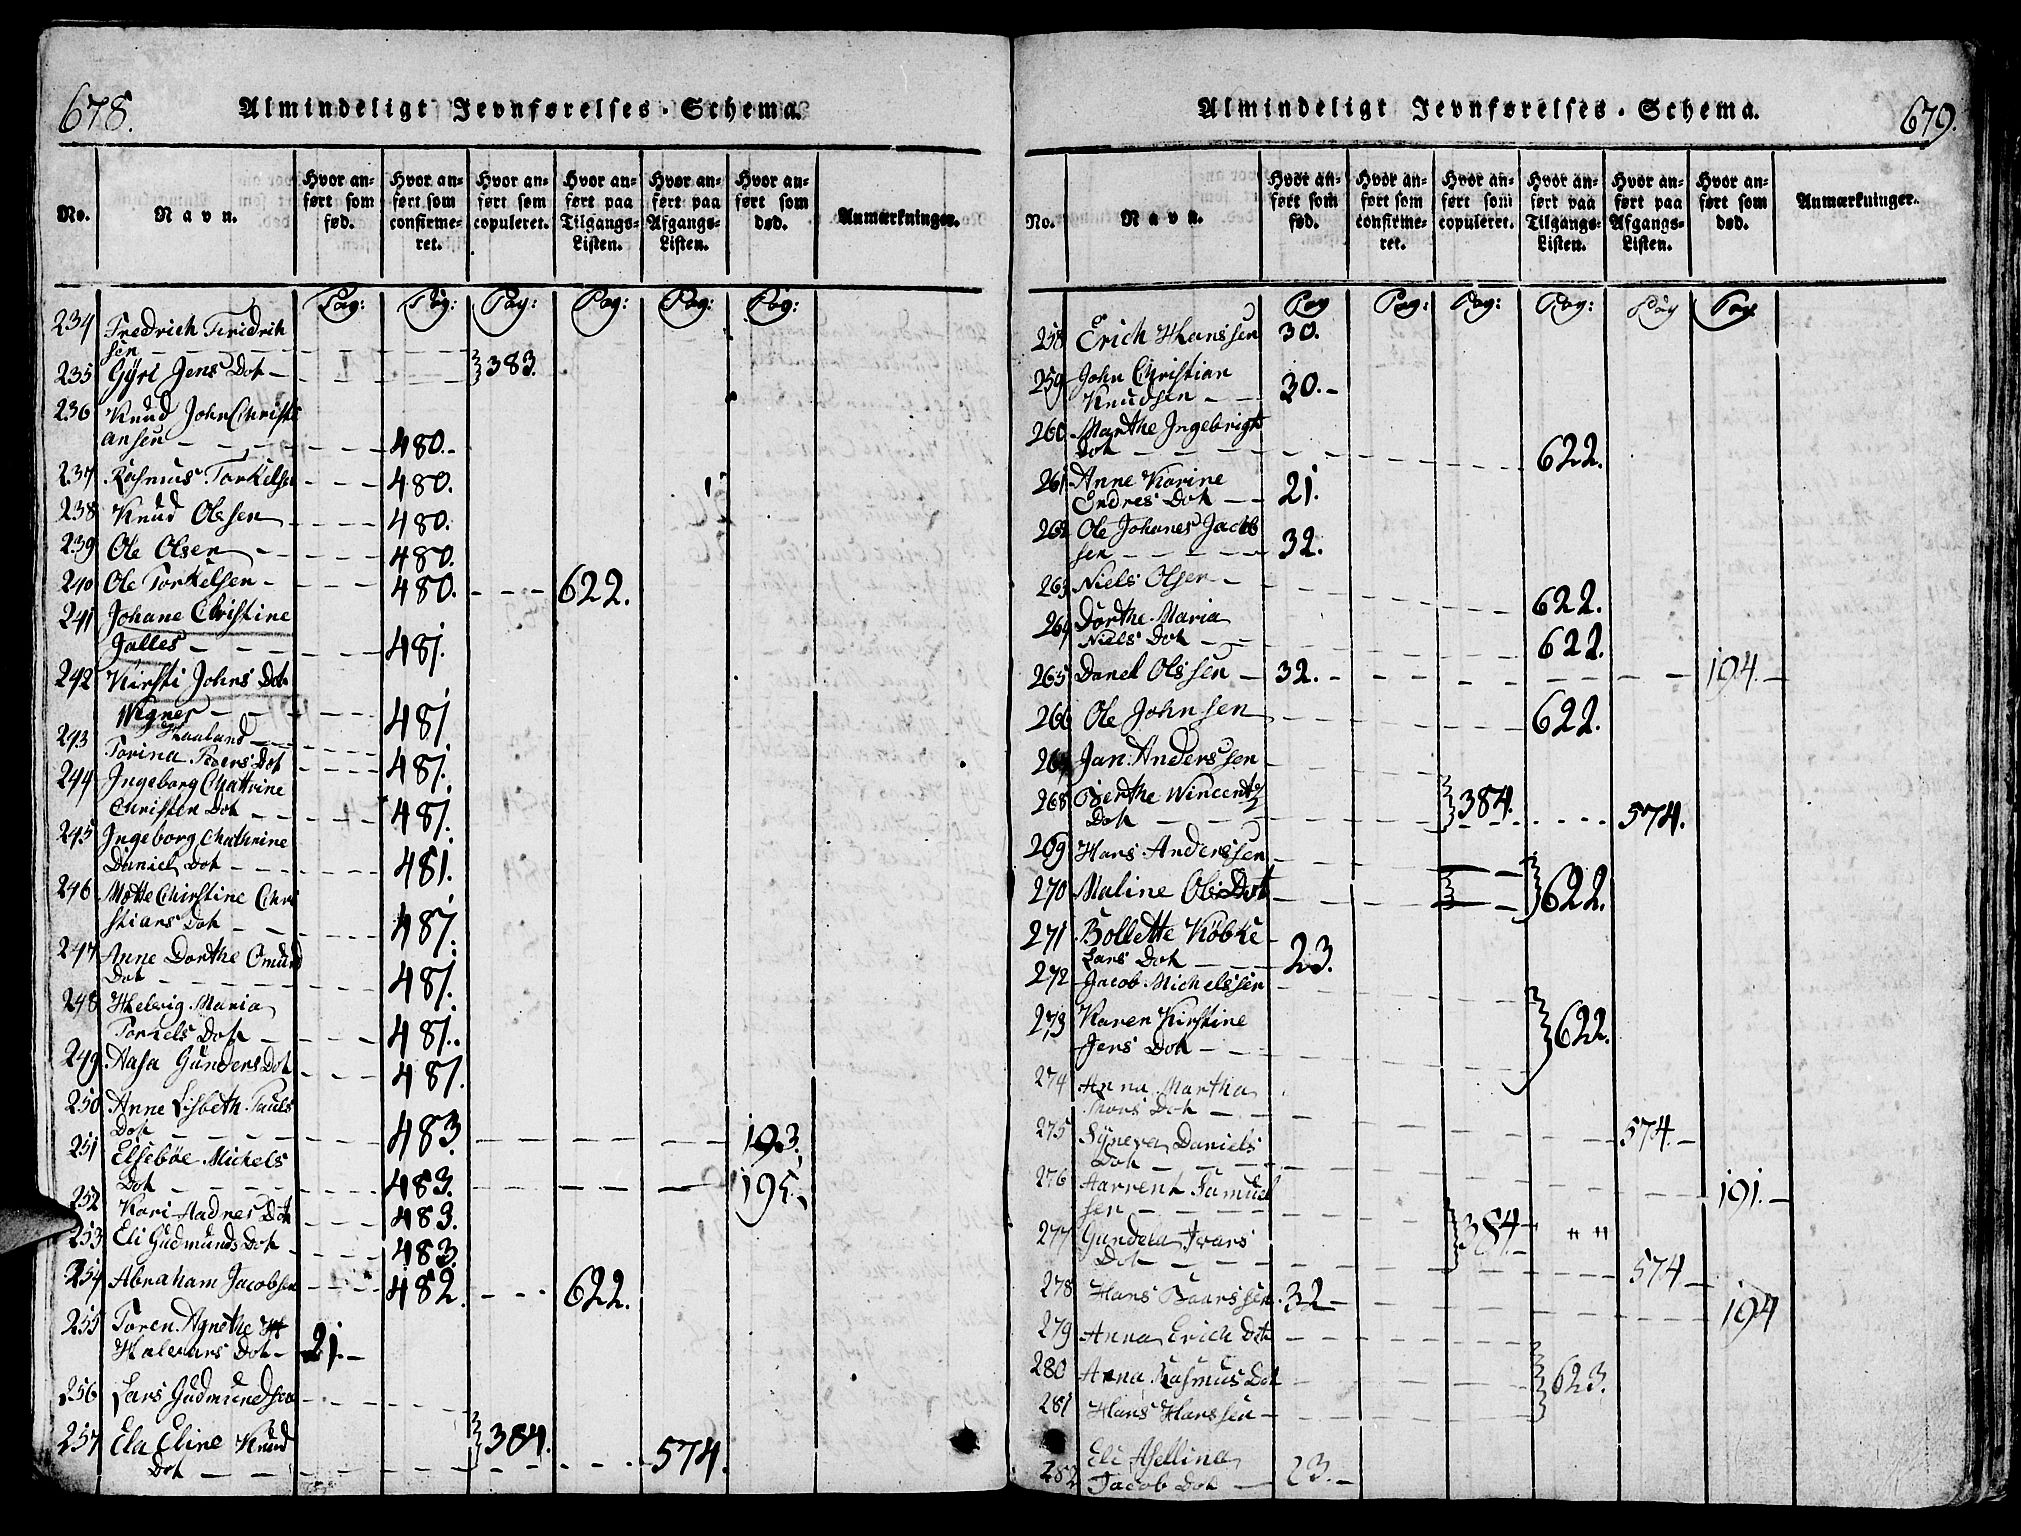 678.
Almindeligt Jevnførelses-Schema.
No.
Navn.
Hvor an-
ført som
fød.
Hvor an-
ført som
confirme-
ret.
Hvor an-
ført som
copuleret.
Hvor an-
ført paa
Tilgangs-
Listen.
Hvor an-
ført paa
Afgangs-
Listen.
Hvor an-
ført som
død.
Anmærkninger.
Pag: Pag: Pag: Pag: Pag: Pag:
234 Fredrich Fridrich
sen
235 Gyri Jens Dot 383.
236 Knud John Christi
ansen 480.
237 Rasmus Torkelsen 480.
238 Knud Olssen 480.
239 Ole Olsen 480.
240 Ole Torkelsen 480. 622.
241 Johane Christine
Jalles 481.
242 Kirsti Johns Dot
Wegner 481
243 Haaland
Torina Peders Dot 481.
244 Ingeborg Chattrine
Christen Dot 481.
245 Ingeborg Chathrine
Daniel Dot 481.
246 Mette Chirstine Chri
stians Dot 481.
247 Anne Dorthe Omund
Dot 481.
248 Helevig Maria
Torkels Dot 481.
249 Aasa Gunders Dot 481.
250 Anne Lisbeth Pauls
Dot 483 193.
251 Elsebøe Michels
Dot 483. 195.
252 Kari Aadnes Dot 483.
253 Eli Gudmunds Dot 483.
254 Abraham Jacobsen 482. 622.
255 Toren Agnethe
Halvars Dot 21.
256 Lars Gudmundsen
257 Ela Eline Knud 384.
Dot 574.
Almindeligt Jevnførelses-Schema.
679.
No.
Navn.
Hvor an-
ført som
fød.
Hvor an-
ført som
confirme-
ret.
Hvor an-
ført som
copuleret.
Hvor an-
ført paa
Tilgangs-
Listen.
Hvor an-
ført paa
Afgangs-
Listen.
Hvor an-
ført som
død.
Anmærkninger.
Pag Pag: Pag: Pag: Pag Pag
258 Erich Hanssen 30.
259 John Christian
Knudsen 30.
260 Marthe Ingebrigt
Dot 622.
261 Anne Karine
Endres Dot 21.
262 Ole Johanes Jacob
sen 32.
263 Niels Olsen 622.
264 Dorthe Maria
Niels Dot 622.
265 Danel Olssen 32. 194.
266 Ole Johnsen 622.
267 Jan Anderssen
268 Berthe Wincentz 384.
Dot 574.
269 Hans Anderssen
270 Maline Ols Dot 622.
271 Bollette Købke
Lars Dot 23.
272 Jacob Michelssen
273 Karen Kirstine 622.
Jens Dot
274 Anna Martha
Thors Dot
275 Syneva Daniels 574.
Dot
276 Harrent Samuel 191.
sen
277 Gundela Ivars 384.
Dot 574
278 Hans Baarssen 32 194
279 Anna Erich Dot
280 Anna Rasmus Dot 623.
281 Hans Hanssen
282 Eli Asellina
Jacob Dot 23.